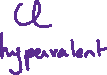 Cl
hypervalent